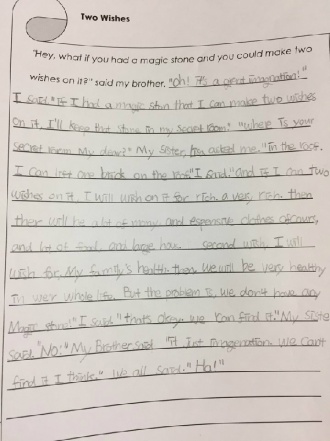 Two Wishes
"Hey, what if you had a magic stone and you could make two
wishes on it?" said my brother. "oh! It's a great imagination!"
I said "If I had a magic ston that I can make two wishes
on it, I'll keep that stone in my secret room." "where is your
secret room My dear?" My sister, has asked me. "In the roof.
I can lift one brick on the roof." I said." and if I can two
wishes on it I will wish on it for rich, a very, rich. then
ther will be a lot of mony, and expensive clothes of cours,
and lot of food, and large hous. second wish, I will
wish for, My family's health. then, we will be very healthy
in wer whole life. But the problem is, we don't have any
Magic stone!" I said. "thats okeye we can find it." My siste
said. "No!" My Brother said. "It Just Imagenation. we can't
find it I think." we all said. "Ha!"